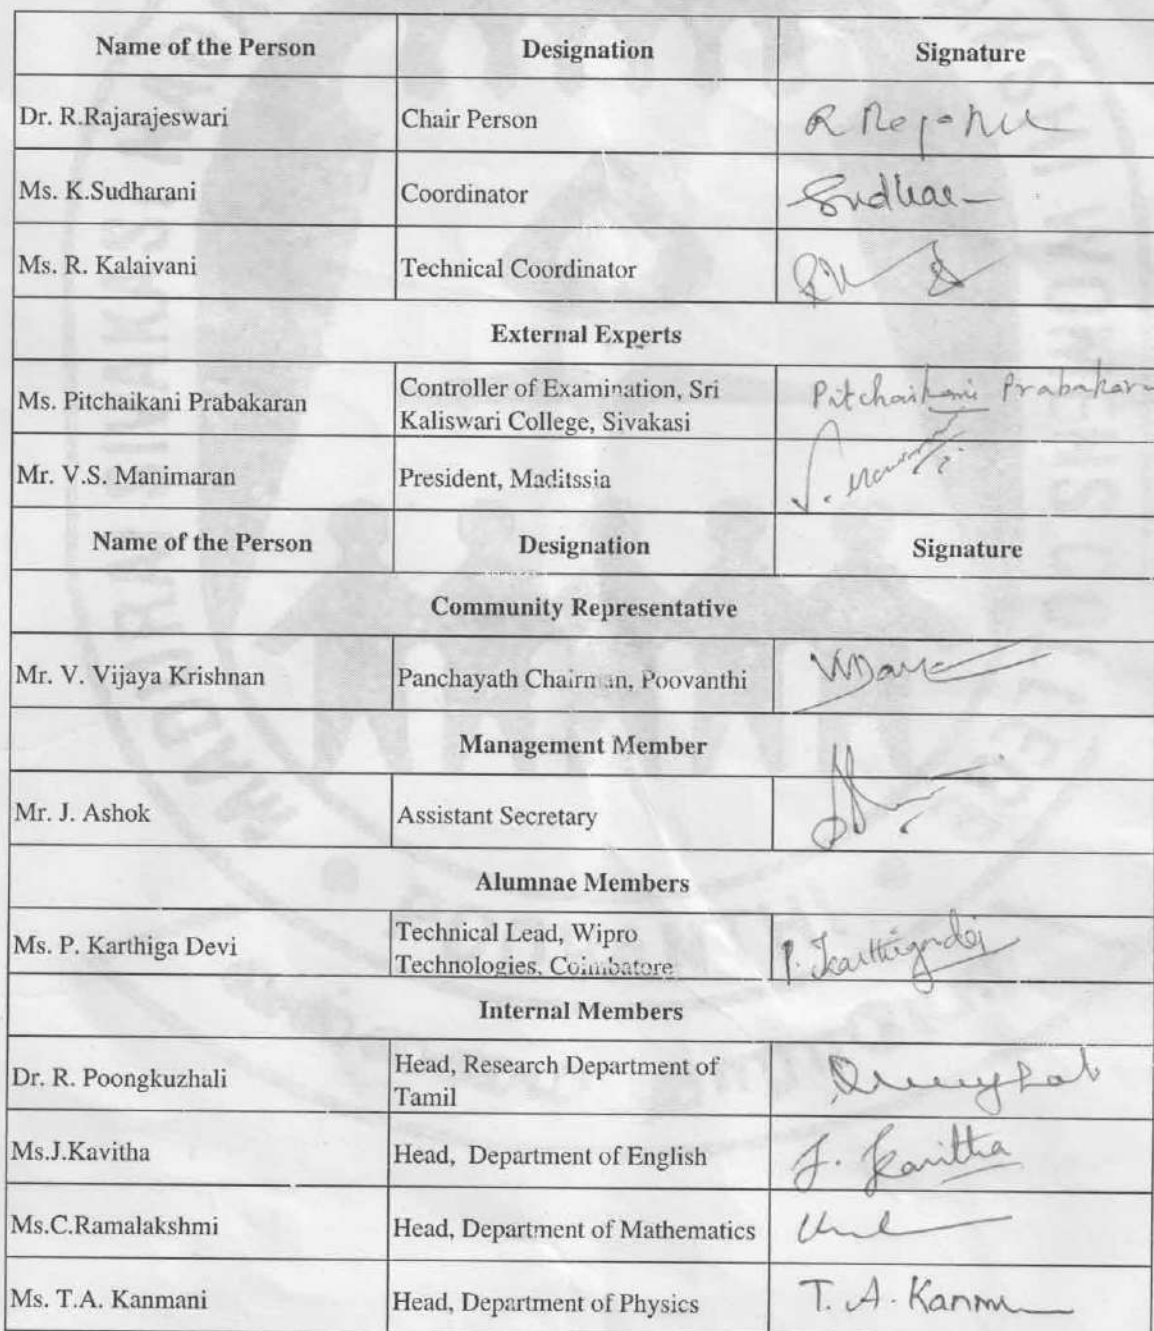 Name of the Person Designation Signature
Dr. R.Rajarajeswari Chair Person
Ms. K.Sudharani Coordinator
Ms. R. Kalaivani Technical Coordinator
External Experts
Ms. Pitchaikani Prabakaran Controller of Examination, Sri Pitchaikani Prabakaran
Kaliswari College, Sivakasi
Mr. V.S. Manimaran President, Maditssia
Name of the Person Designation Signature
Community Representative
Mr. V. Vijaya Krishnan Panchayath Chairman, Poovanthi
Management Member
Mr. J. Ashok Assistant Secretary
Alumnae Members
Ms. P. Karthiga Devi Technical Lead, Wipro
Technologies, Coimbatore
Internal Members
Dr. R. Poongkuzhali Head, Research Department of
Tamil
Ms.J.Kavitha Head, Department of English J. Kavitha
Ms.C.Ramalakshmi Head, Department of Mathematics
Ms. T.A. Kanmani Head, Department of Physics T. A. Kanm